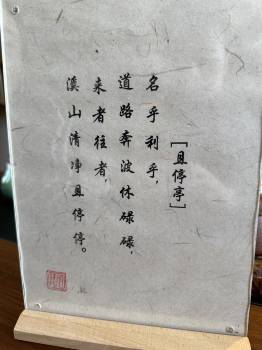 ［且停亭］
名乎利乎，
道路奔波休碌碌，
来者往者，
溪山清净且停停。